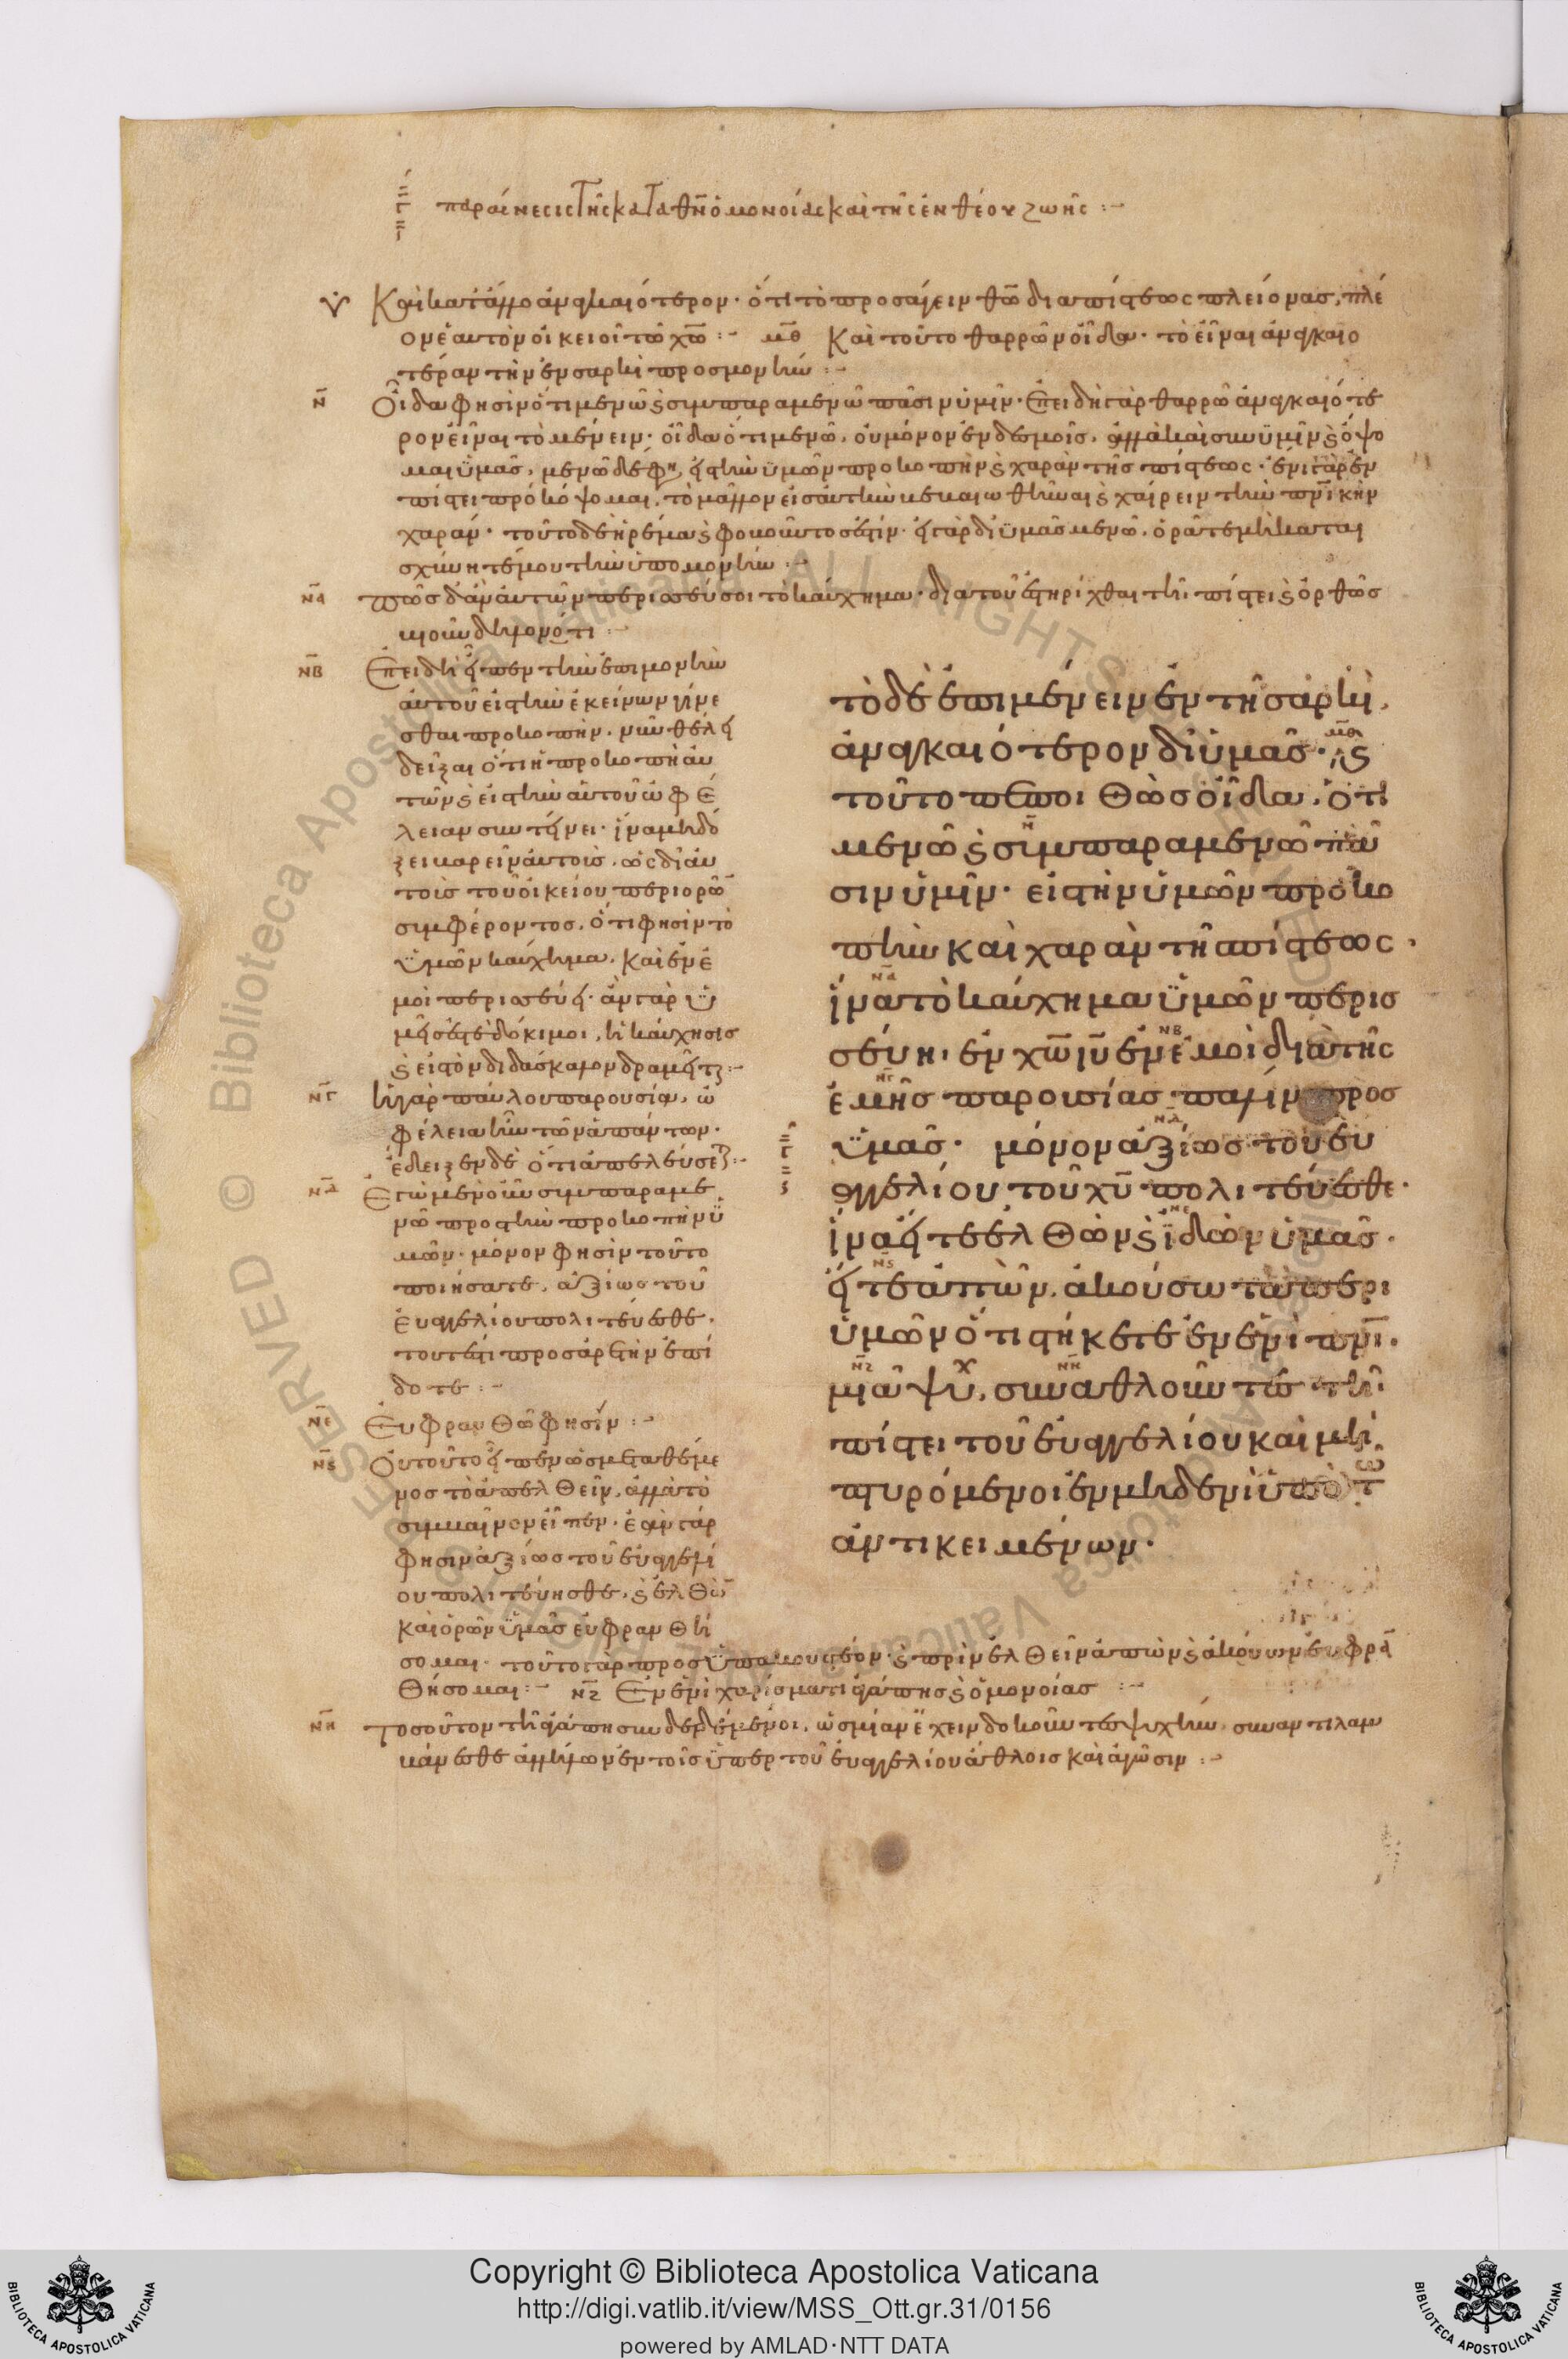 Γ παραίνεσις τῆς κατὰ θν ὁμονοίας καὶ τῆς ἐνθέου ζωῆς :~
Καὶ κατ' ἄλλο ἀναγκαιότερον· ὅτι τὸ προσάγειν θῶ διὰ πίστεως πλείονας, πλέ
ον ἑαυτὸν οἰκειοῖ τῶ χω :~ ΜΘ Καὶ τοῦτο θαρρῶν οἶδα· τὸ εἶναι ἀναγκαιο
τέραν τὴν ἐν σαρκὶ προσμονήν :~
Ν Οἶδα φησὶν ὅτι μενῶ καὶ συμπαραμενῶ πᾶσιν ὑμῖν· Ἐπειδὴ γὰρ θαρρῶ ἀναγκαιότε
ρον εἶναι τὸ μένειν· οἶδα ὅτι μενῶ, οὐ μόνον ἐν δεσμοῖς, ἀλλὰ καὶ σὺν ὑμῖν καὶ ὄψο
μαι ὑμᾶς, μενῶ δέ φη, εἰς τὴν ὑμῶν προκοπὴν καὶ χαρὰν τῆς πίστεως· ἔνι γὰρ ἐν
πίστει προκόψομαι, τὸ μᾶλλον εἰς αὐτὴν κεκαιωθῆναι καὶ χαίρειν τὴν πνικὴν
χαράν· τοῦτο δὲ ἠρέμα καὶ φοβοῦντος ἐστίν· εἰ γὰρ δι' ὑμᾶς μενῶ, ὁρᾶτε μὴ καται
σχύνητέ μου τὴν ὑπομονήν :~
ΝΑ πῶς δ' ἂν αὐτῶν περισσεύσοι τὸ καύχημα· διὰ τοῦ ἐστηρίχθαι τῆι πίστει καὶ ὀρθῶς
βιοῦν δηλονότι :~
ΝΒ Ἐπειδὴ εἶπεν τὴν ἐπιμονὴν
αὐτοῦ εἰς τὴν ἐκείνων γίνε
σθαι προκοπὴν, νῦν θέλει
δεῖξαι ὅτι ἡ προκοπὴ αὐ
τῶν καὶ εἰς τὴν αὐτοῦ ὠφέ
λειαν συντείνει· ἵνα μὴ δό
ξει βαρεῖν αὐτοῖς, ὡς δι' αὐ
τοὺς τοῦ οἰκείου περιορῶ
συμφέροντος, ὅτι φησὶν τὸ
ὑμῶν καύχημα, καὶ ἐν ἐ
μοὶ περισσεύει· ἂν γὰρ ὑ
μεῖς ἐστὲ δόκιμοι, ἡ καύχησις
καὶ εἰς τὸν διδάσκαλον δραμεῖται :~
ΝΓ Ἡ γὰρ παύλου παρουσία, ὠ
φέλεια ἦν τῶν ἁπάντων·
ἔδειξεν δὲ ὅτι ἀπελεύσεται :~
ΝΔ Ἐγὼ μὲν οὖν συμπαραμε
νῶ πρὸς τὴν προκοπὴν ὑ
μῶν· μόνον φησὶν τοῦτο
ποιήσατε, ἀξίως τοῦ
εὐαγγελίου πολιτεύεσθε·
τουτέστι πρὸς ἀρετὴν ἐπί
δοτε :~
ΝΕ Εὐφρανθῶ φησίν :~
Νς Οὐ τοῦτο εἶπεν ὡς μεταθέμε
νος τὸ ἀπελθεῖν, ἀλλὰ τὸ
συμβαῖνον εἶπεν· ἐὰν γάρ
φησιν ἀξίως τοῦ εὐαγγελί
ου πολιτεύησθε, καὶ ἐλθὼ
καὶ ὁρῶν ὑμᾶς εὐφρανθή
σομαι· τοῦτο γὰρ προσυπακουστέον· καὶ πρὶν ἐλθεῖν ἀπὼν καὶ ἀκούων εὐφρα
θήσομαι :~ ΝΖ Ἐν ἑνὶ χαρίσματι ἀγάπης καὶ ὁμονοίας :~
ΝΗ Τοσοῦτον τῆι ἀγάπη συνδεδεμένοι, ὡς μίαν ἔχειν δοκοῦντες ψυχήν, συναντιλαμ
βάνεσθε ἀλλήλων ἐν τοῖς ὑπὲρ τοῦ εὐαγγελίου ἄθλοις καὶ ἀγῶσιν :~
τὸ δὲ ἐπιμένειν ἐν τῆ σαρκὶ,
ἀναγκαιότερον δι' ὑμᾶς· καὶ
τοῦτο πεποιθὼς οἶδα, ὅτι
μενῶ καὶ συμπαραμενῶ πᾶ
σιν ὑμῖν· εἰς τὴν ὑμῶν προκο
πὴν καὶ χαρὰν τῆς πίστεως·
ἵνα τὸ καύχημα ὑμῶν περισ
σεύη· ἐν χω ιυ ἐν ἐμοὶ διὰ τῆς
ἐμῆς παρουσίας πάλιν πρὸς
Γ ὑμᾶς· μόνον ἀξίως τοῦ εὐ
αγγελίου τοῦ χυ πολιτεύεσθε·
ἵνα εἴτε ἐλθὼν καὶ ἰδὼν ὑμᾶς·
εἴτε ἀπὼν, ἀκούσω τὰ περὶ
ὑμῶν ὅτι στήκετε ἐν ἑνὶ πνι·
μιᾶ ψυχ, συναθλοῦντες τῆι
πίστει τοῦ εὐαγγελίου καὶ μὴ
πτυρόμενοι ἐν μηδενὶ ὑπὸ τῶ
ἀντικειμένων·
Copyright © Biblioteca Apostolica Vaticana
http://digi.vatlib.it/view/MSS_Ott.gr.31/0156
powered by AMLAD·NTT DATA